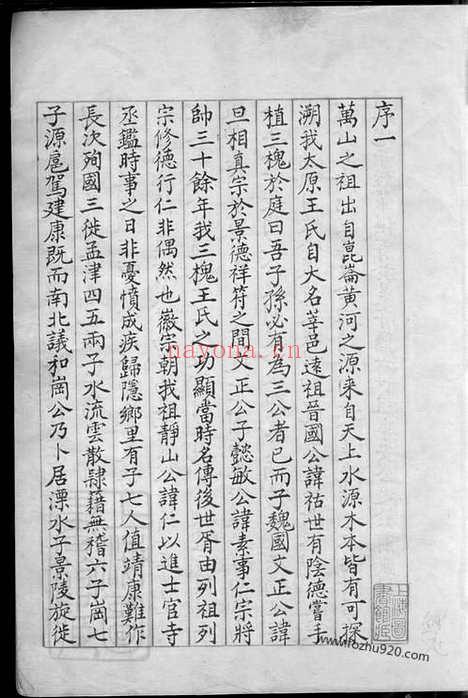 序一
萬山之祖出自崑崙黃河之源来自天上水源木本皆有可探
溯我太原王氏自大名莘邑遠祖晉國公諱祜世有陰德嘗手
植三槐於庭曰吾子孫必有為三公者已而子魏國文正公諱
旦相真宗於景德祥符之間文正公子懿敏公諱素事仁宗將
帥三十餘年我三槐王氏之功顯當時名傳後世胥由列祖列
宗修德行仁非偶然也徽宗朝我祖靜山公諱仁以進士官寺
丞鑑時事之日非憂憤成疾歸隱鄉里有子七人值靖康難作
長次殉國三徙孟津四五兩子水流雲散隸籍無稽六子崗七
子源扈駕建康既而南北議和崗公乃卜居溧水子景陵旋徙
nayona.cn
www.fozhu920.com